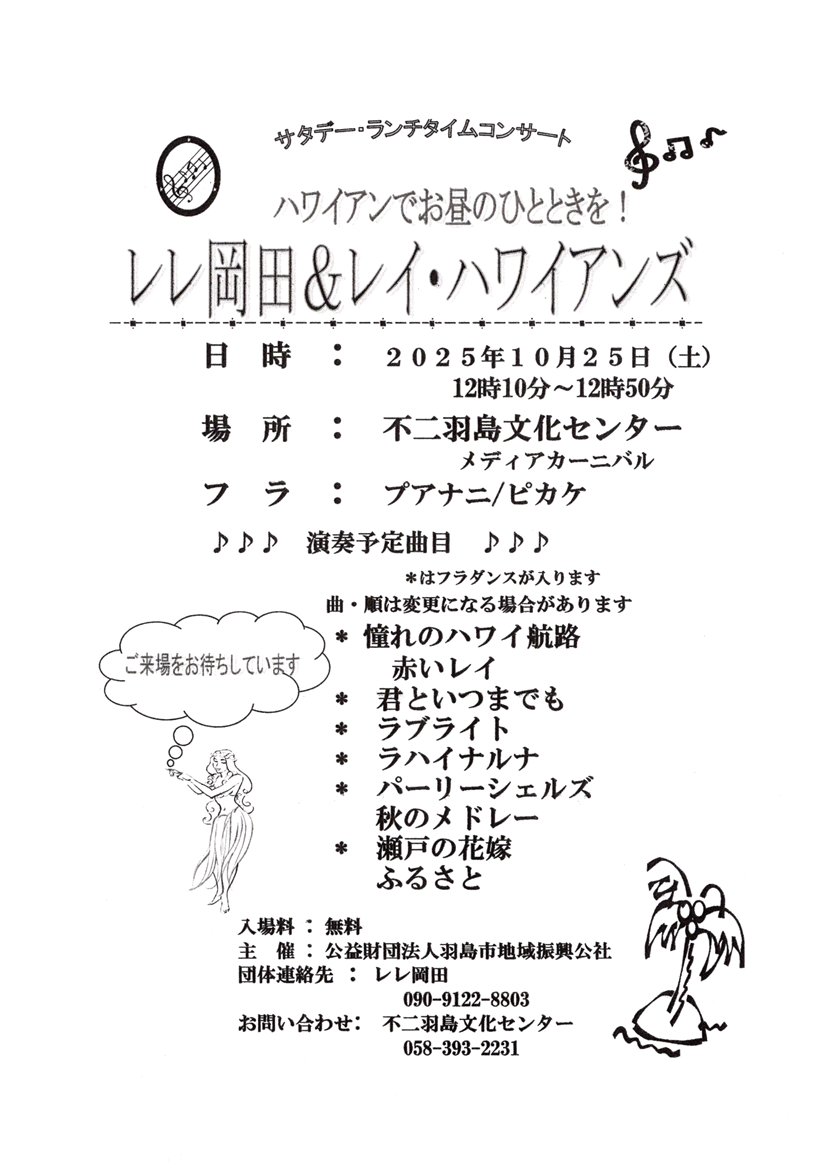 サタデー・ランチタイムコンサート
ハワイアンでお昼のひとときを！
レレ岡田＆レイ・ハワイアンズ
日　時　：　２０２５年１０月２５日（土）
12時10分～12時50分
場　所　：　不二羽島文化センター
メディアカーニバル
フ　ラ　：　プアナニ/ピカケ
♪♪♪　演奏予定曲目　♪♪♪
＊はフラダンスが入ります
曲・順は変更になる場合があります
ご来場をお待ちしています
＊ 憧れのハワイ航路
赤いレイ
＊ 君といつまでも
＊ ラブライト
＊ ラハイナルナ
＊ パーリーシェルズ
秋のメドレー
＊ 瀬戸の花嫁
ふるさと
入場料 ： 無料
主　催 ： 公益財団法人羽島市地域振興公社
団体連絡先 ： レレ岡田
090-9122-8803
お問い合わせ： 不二羽島文化センター
058-393-2231